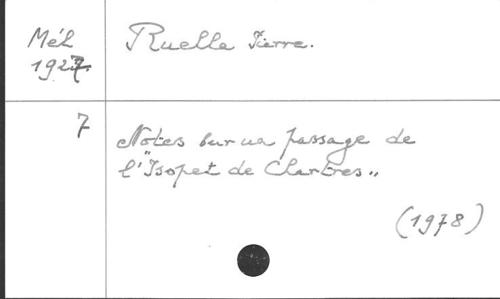 Mél
1927.
Ruelle Pierre.
7
Notes sur un passage de
l'"Isopet de Chartres„
(1978)